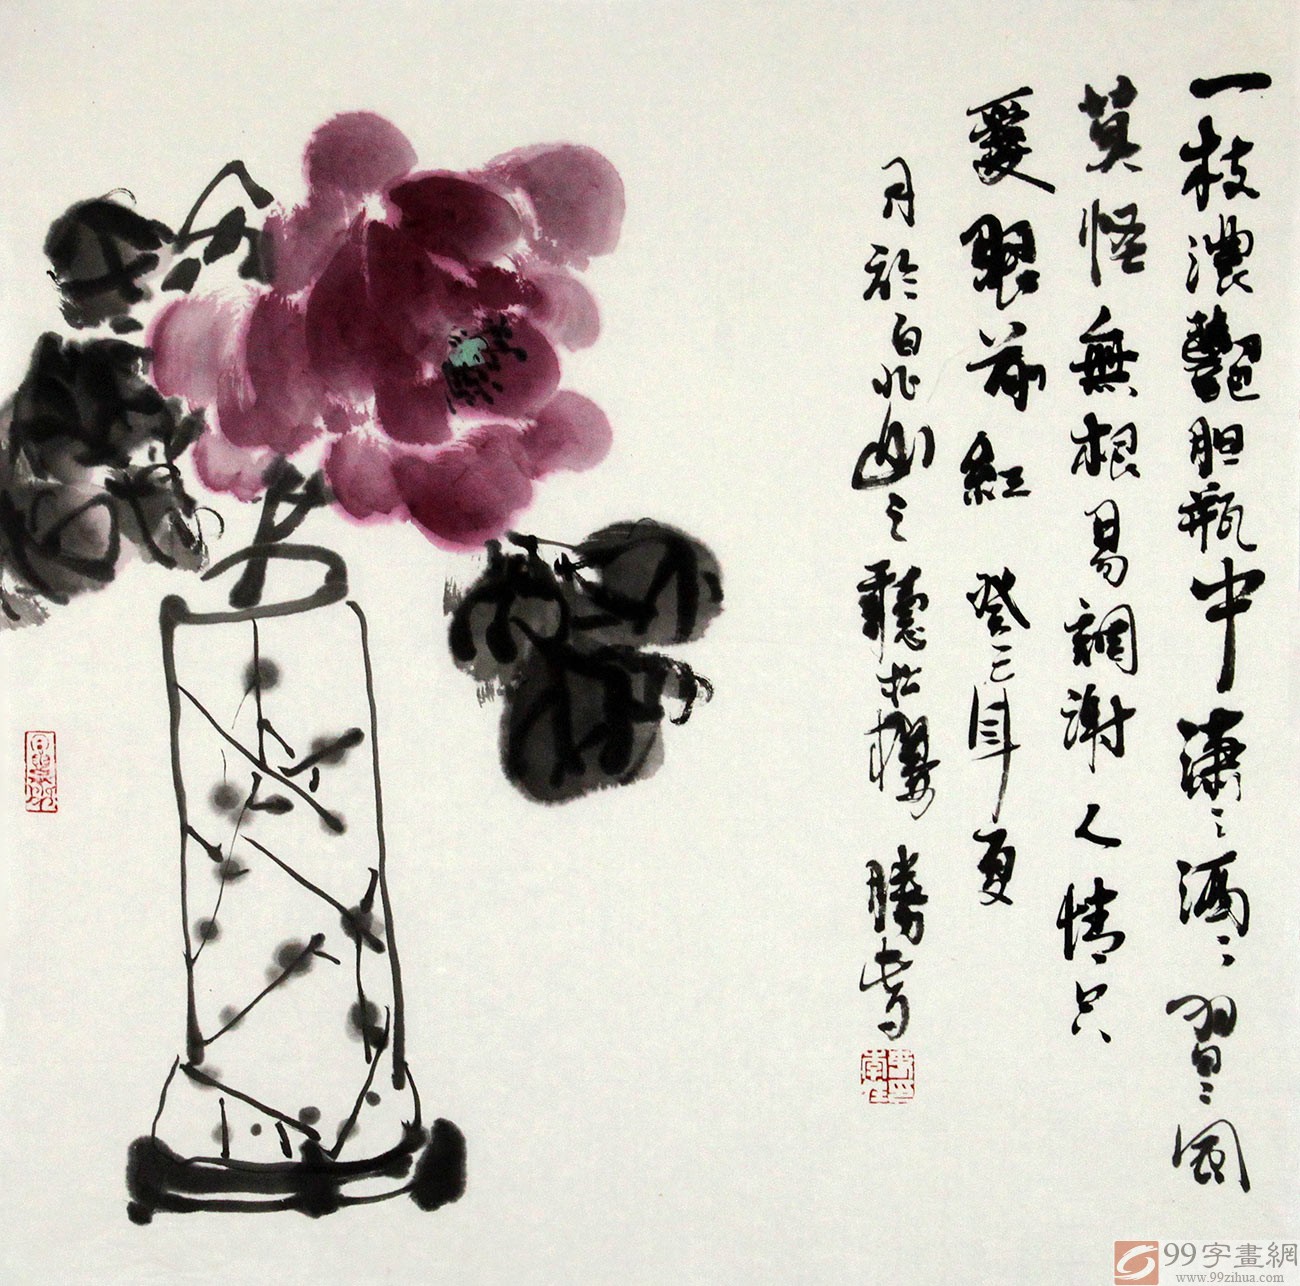 一枝濃艷胆瓶中瀟〻洒〻習〻風
莫怪無根易凋謝人情只
愛眼前紅 癸巳年夏
月於白兆山之聽松樓 勝
99字畫網
www.99zihua.com